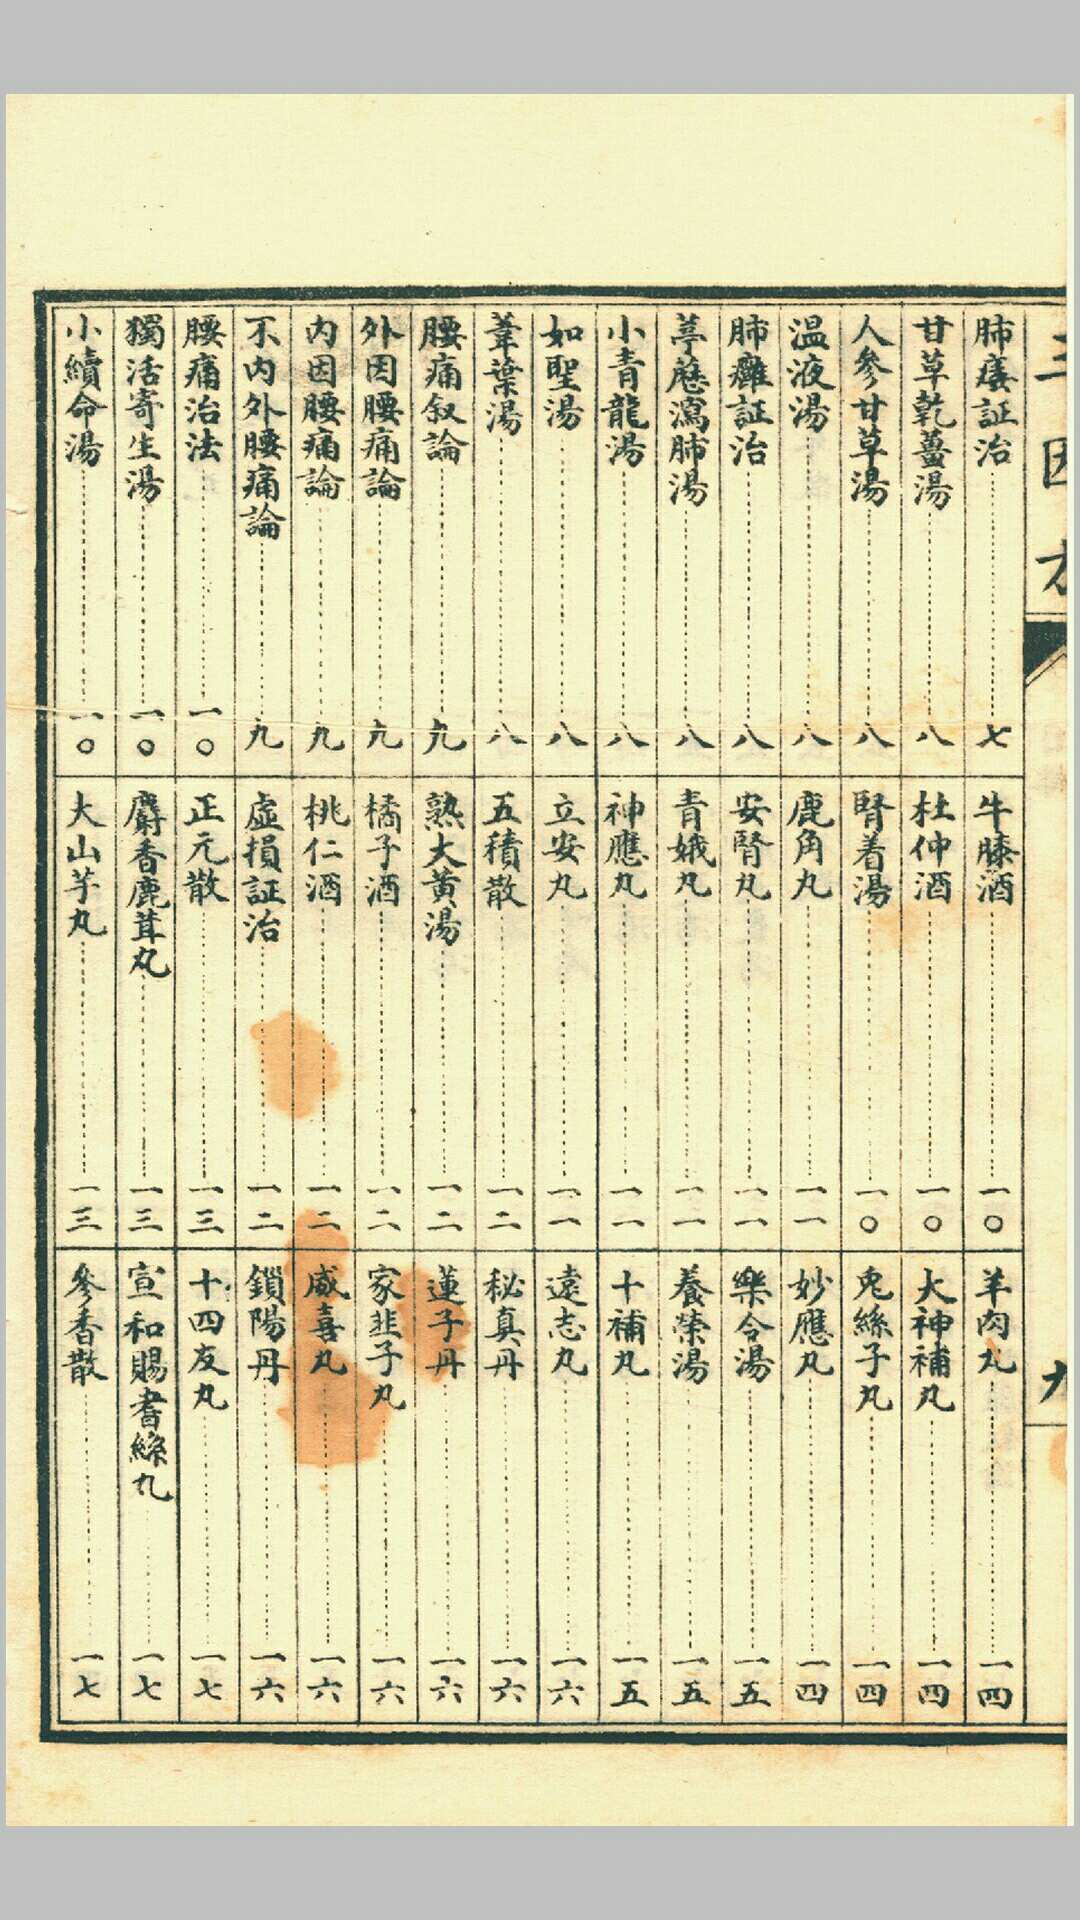 三因方
九
肺痿証治 七
甘草乾薑湯 八
人參甘草湯 八
温液湯 八
肺癰証治 八
葶藶瀉肺湯 八
小青龍湯 八
如聖湯 八
葦葉湯 八
腰痛叙論 九
外因腰痛論 九
内因腰痛論 九
不内外腰痛論 九
腰痛治法 一〇
獨活寄生湯 一〇
小續命湯 一〇
牛膝酒 一〇
杜仲酒 一〇
腎着湯 一〇
鹿角丸 一一
安腎丸 一一
青娥丸 一一
神應丸 一一
立安丸 一一
五積散 一二
熟大黄湯 一二
橘子酒 一二
桃仁酒 一二
虛損証治 一二
正元散 一三
麝香鹿茸丸 一三
大山芋丸 一三
羊肉丸 一四
大神補丸 一四
兎絲子丸 一四
妙應丸 一四
樂令湯 一五
養榮湯 一五
十補丸 一五
遠志丸 一六
秘真丹 一六
蓮子丹 一六
家韭子丸 一六
威喜丸 一六
鎖陽丹 一六
十四友丸 一七
宣和賜耆絲丸 一七
參香散 一七